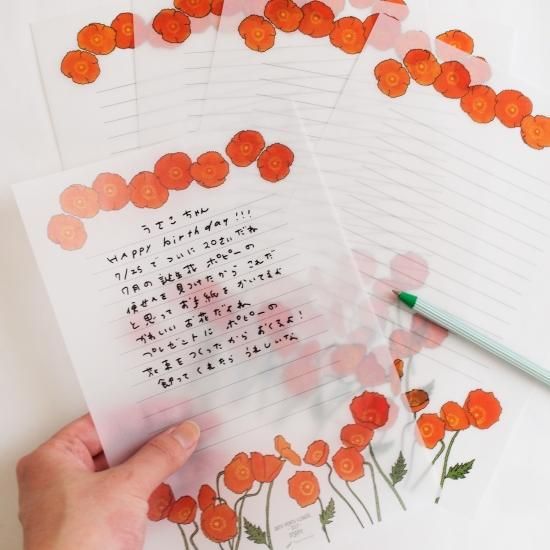 うてこちゃん
HAPPY birthday!!!
7/25でついに20さいだね
7月の誕生花ポピーの
便せんを見つけたからこれだ
と思ってお手紙をかいてるよ
かわいいお花だよね
プレゼントにポピーの
花束をつくったからおくるよ!
飾ってくれたらうれしいな
BIRTH MONTH FLOWER
JULY
POPPY